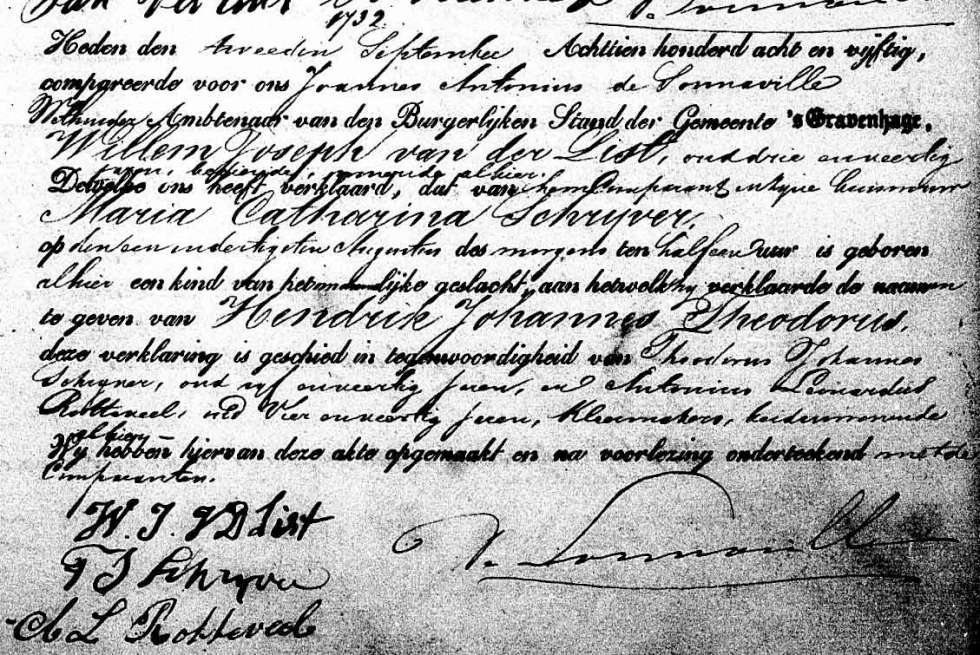 1732
Heden den tweeden September Achttien honderd acht en vijftig,
compareerde voor ons Joannes Antonius de Sonnaville
Wethouder Ambtenaar van den Burgerlijken Stand der Gemeente 's Gravenhage,
Willem Joseph van der List, oud drie en veertig
jaren, wonende alhier.
Dewelke ons heeft verklaard, dat van hem Comparant en zijne huisvrouw
Maria Catharina Schryver,
op den een en dertigsten Augustus des morgens ten half een uur is geboren
alhier een kind van het mannelijke geslacht, aan hetwelk hij verklaarde de namen
te geven van Hendrik Johannes Theodorus,
deze verklaring is geschied in tegenwoordigheid van Theodorus Johannes
Schryver, oud vijf en veertig jaren, en Antonius Leonardus
Rotteveel, oud Vier en veertig jaren, Kleermakers, beiden wonende
alhier
Wij hebben hiervan deze akte opgemaakt en na voorlezing onderteekend met de
Comparanten.
W. J. v D List
T J Schryver
A L Rotteveel
de Sonnaville